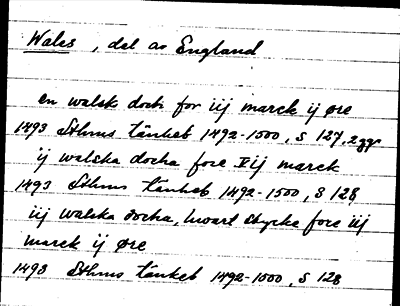 Wales, del av England
en walsk dock for iij marck ij öre
1493 Sthms tänkeb 1492-1500, s 127, 2 ggr
ij walska docka fore Vij marck
1493 Sthms tänkeb 1492-1500, s 128
iij walska docka, hwart stycke fore iij
marck ij öre
1493 Sthms tänkeb 1492-1500, s 128